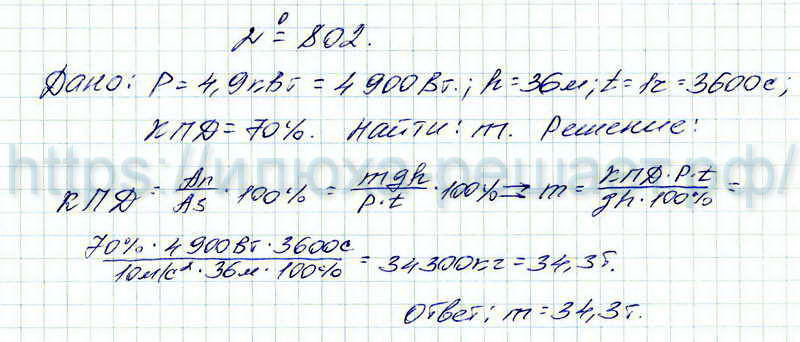 № 802.
Дано: P = 4,9кВт = 4900Вт.; h = 36м; t = 1ч = 3600с;
КПД = 70%. Найти: m. Решение:
https://илюха-решает.рф/
КПД = Aп/Aз · 100% = mgh/P·t · 100% ⇒ m = КПД·P·t/gh·100% =
70% · 4900Вт · 3600с/10м/с² · 36м · 100% = 34300кг = 34,3т.
Ответ: m = 34,3т.